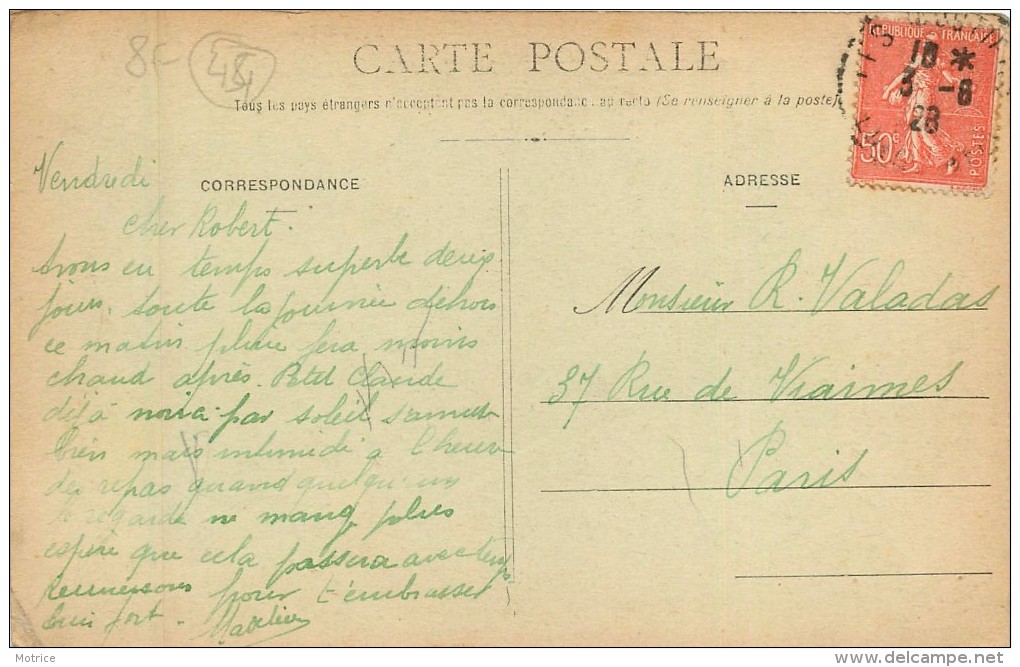 8€
454
CARTE POSTALE
Tous les pays étrangers n'acceptent pas la correspondance au recto (Se renseigner à la poste)
CORRESPONDANCE
ADRESSE
RÉPUBLIQUE FRANÇAISE
50c
POSTES
18 *
3 -8
28
Vendredi
Cher Robert.
Avons eu temps superbe deux
jours. toute la journée dehors
ce matin pluie fera moins
chaud après. Petit Claude
déjà noirci par soleil s'amuse
bien mais intimidé à l'heure
des repas quand quelqu'un
le regarde ne mang plus
espère que cela passera avec temps
pour t'embrasser
bien fort -
Monsieur R. Valadas
37 Rue de Viarmes
Paris
Motrice
http://www.delcampe.net